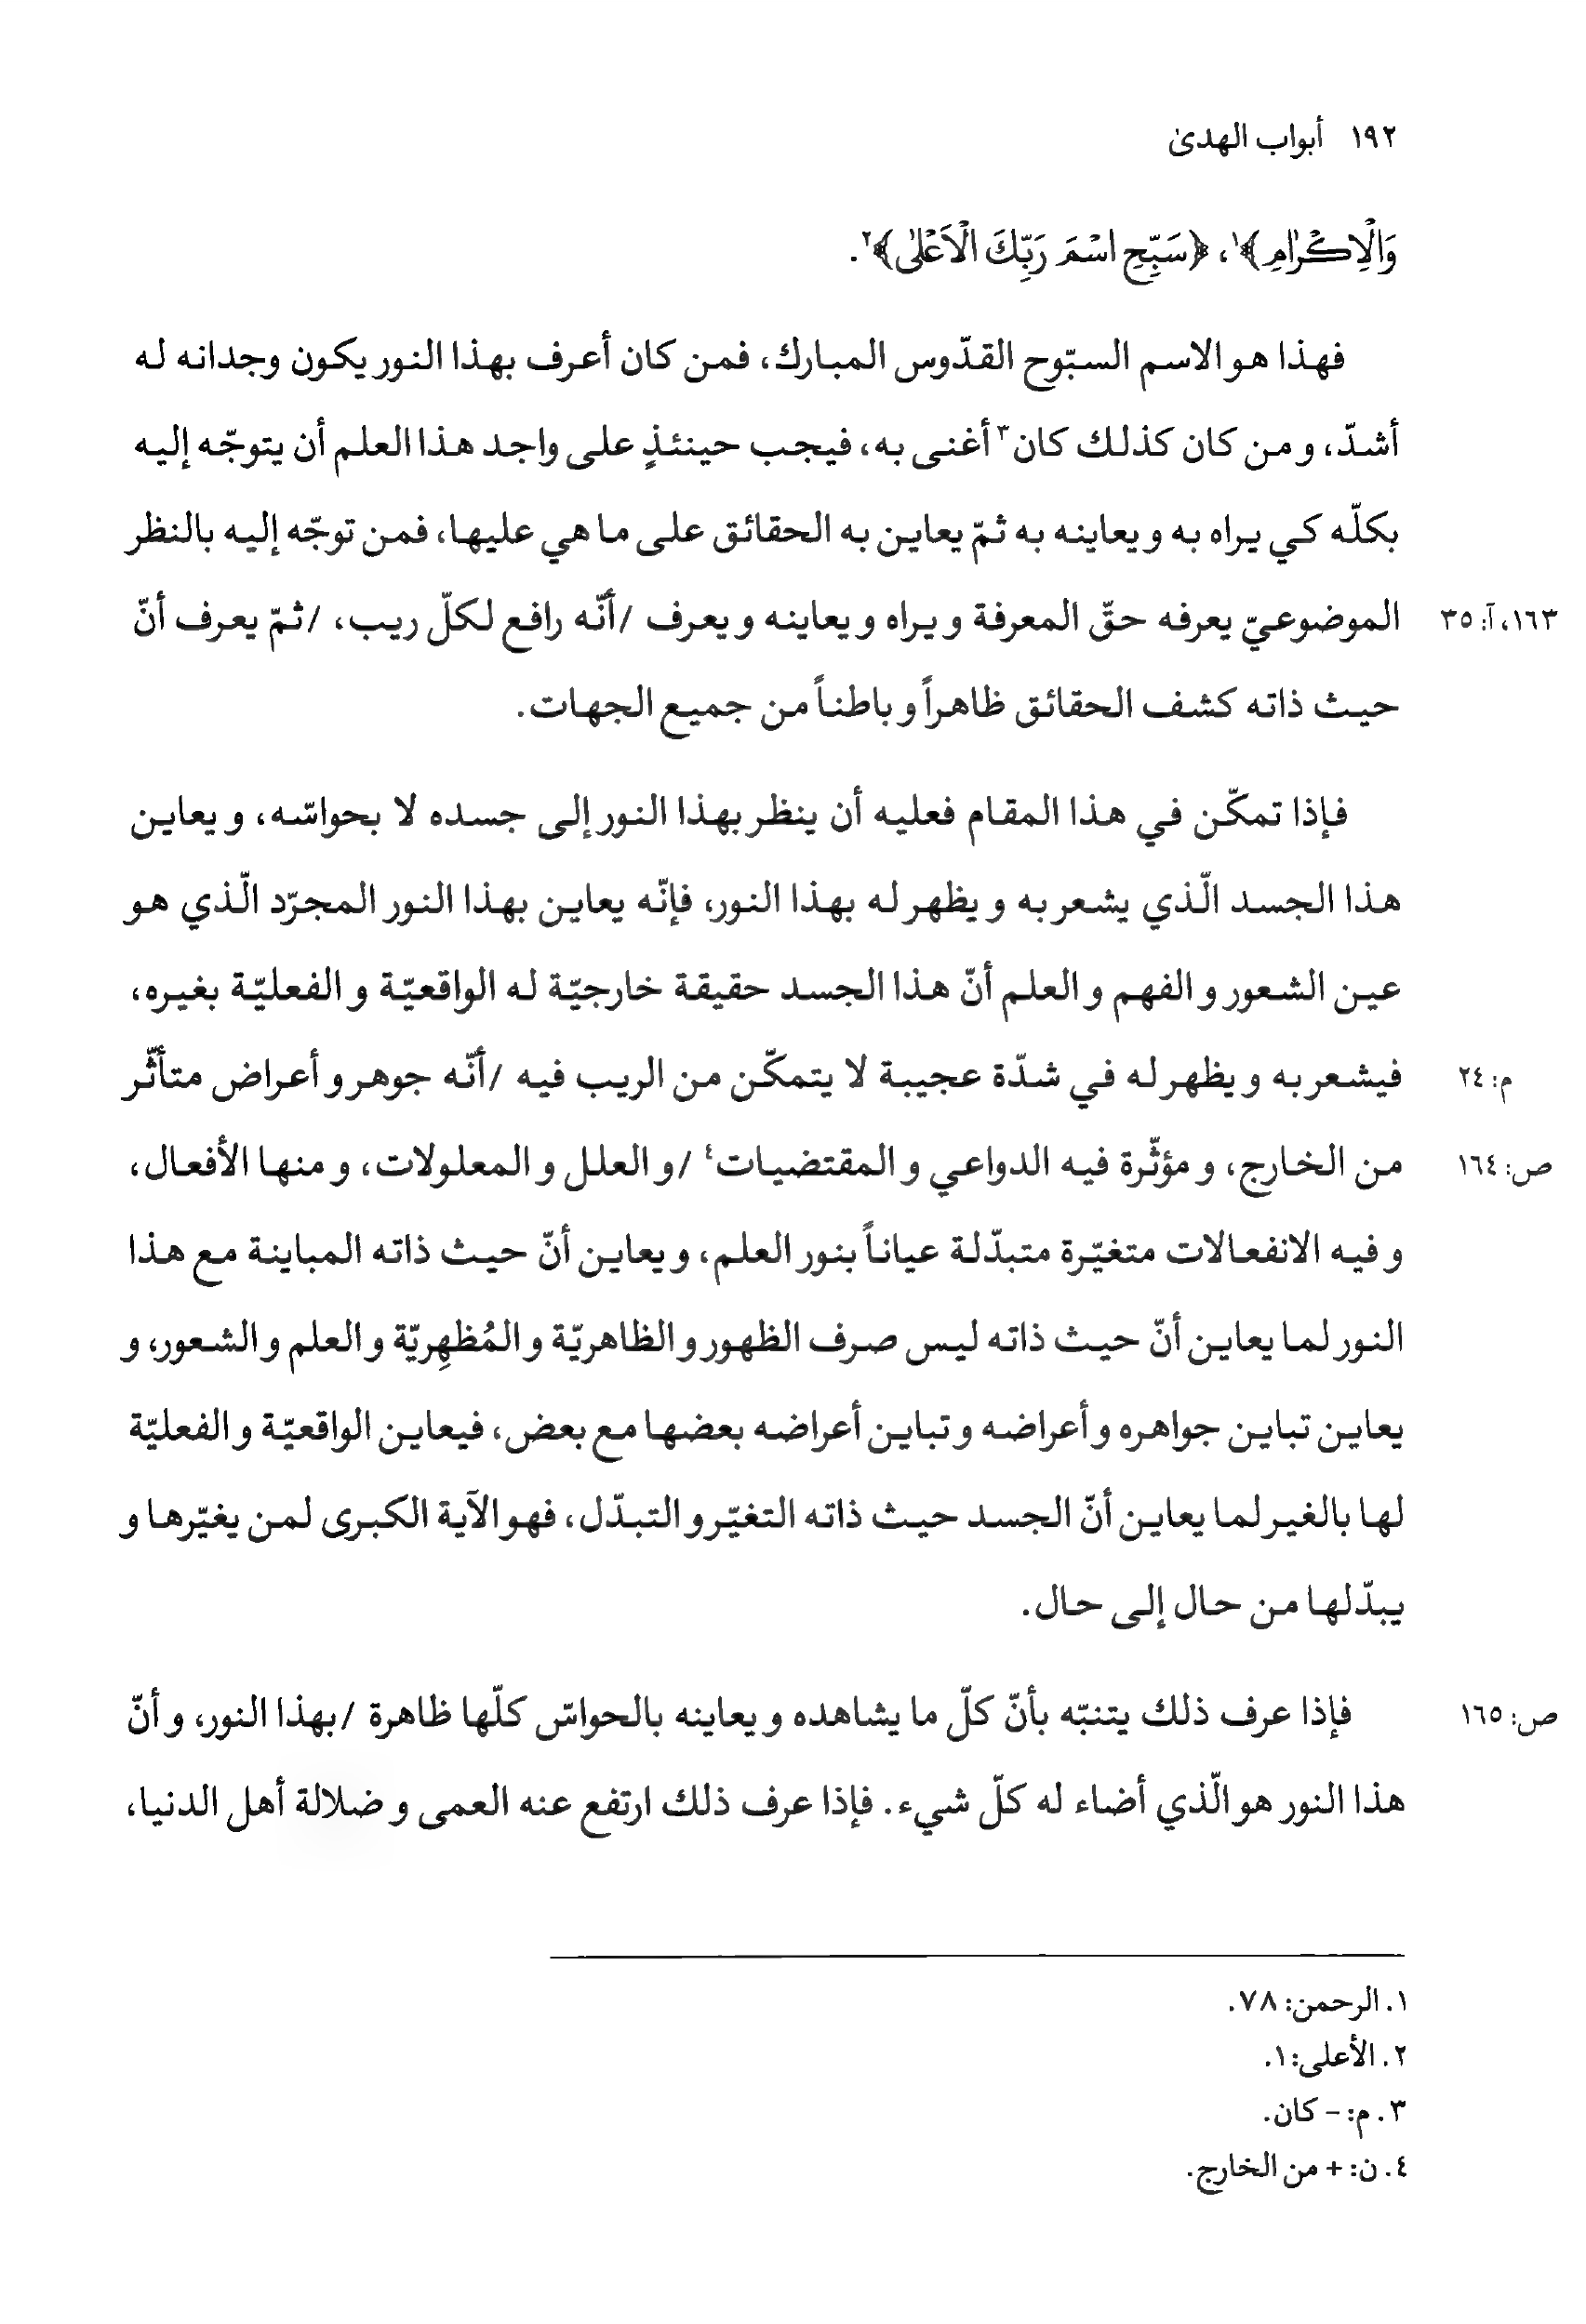 ١٩٢ أبواب الهدىٰ
وَالْاِكْرٰامِ﴾١، ﴿سَبِّحِ اسْمَ رَبِّكَ الْاَعْلىٰ﴾٢.
فهذا هو الاسم السبّوح القدّوس المبارك، فمن كان أعرف بهذا النور يكون وجدانه له
أشدّ، و من كان كذلك كان٣ أغنى به، فيجب حينئذٍ على واجد هذا العلم أن يتوجّه إليه
بكلّه كي يراه به و يعاينه به ثمّ يعاين به الحقائق على ما هي عليها، فمن توجّه إليه بالنظر
الموضوعيّ يعرفه حقّ المعرفة و يراه و يعاينه و يعرف /أنّه رافع لكلّ ريب، /ثمّ يعرف أنّ
١٦٣، آ: ٣٥
حيث ذاته كشف الحقائق ظاهراً و باطناً من جميع الجهات.
فإذا تمكّن في هذا المقام فعليه أن ينظر بهذا النور إلى جسده لا بحواسّه، و يعاين
هذا الجسد الّذي يشعر به و يظهر له بهذا النور، فإنّه يعاين بهذا النور المجرّد الّذي هو
عين الشعور و الفهم و العلم أنّ هذا الجسد حقيقة خارجيّة له الواقعيّة و الفعليّة بغيره،
فيشعر به و يظهر له في شدّة عجيبة لا يتمكّن من الريب فيه /أنّه جوهر و أعراض متأثّر
م: ٢٤
من الخارج، و مؤثّرة فيه الدواعي و المقتضيات٤ /و العلل و المعلولات، و منها الأفعال،
ص: ١٦٤
و فيه الانفعالات متغيّرة متبدّلة عياناً بنور العلم، و يعاين أنّ حيث ذاته المباينة مع هذا
النور لما يعاين أنّ حيث ذاته ليس صرف الظهور و الظاهريّة و المُظهِريّة و العلم و الشعور، و
يعاين تباين جواهره و أعراضه و تباين أعراضه بعضها مع بعض، فيعاين الواقعيّة و الفعليّة
لها بالغير لما يعاين أنّ الجسد حيث ذاته التغيّر و التبدّل، فهو الآية الكبرى لمن يغيّرها و
يبدّلها من حال إلى حال.
فإذا عرف ذلك يتنبّه بأنّ كلّ ما يشاهده و يعاينه بالحواسّ كلّها ظاهرة /بهذا النور، و أنّ
ص: ١٦٥
هذا النور هو الّذي أضاء له كلّ شيء. فإذا عرف ذلك ارتفع عنه العمى و ضلالة أهل الدنيا،
١. الرحمن: ٧٨.
٢. الأعلى: ١.
٣. م: – كان.
٤. ن: + من الخارج.